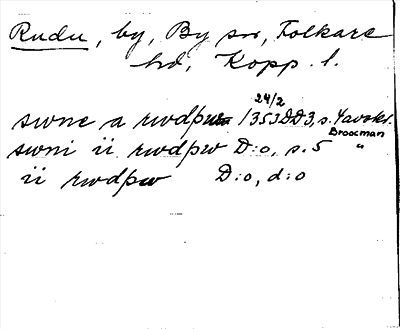 Rudu, by, By sn, Folkare
hd, Kopp. l.
24/2
swne a rwdhpwm 1353 DD3, s. 4 avskr.
Broocman
swni ii rwdhpw D:o, s. 5 "
ii rwdhpw D:o, d:o